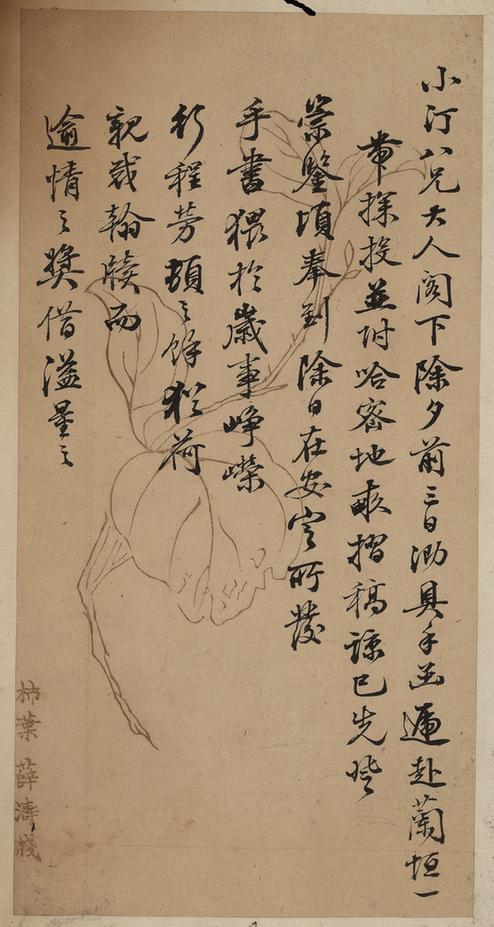 小汀八兄大人閣下除夕前三日泐具手函遞赴蘭垣一
帶探投並附哈密地畝摺稿諒已先塵
崇鑒頃奉到除日在安定所發
手書猥於歲事崢嶸
行程勞頓之餘猶荷
親裁翰牘而
逾情之獎借溢量之
柿葉薛濤牋